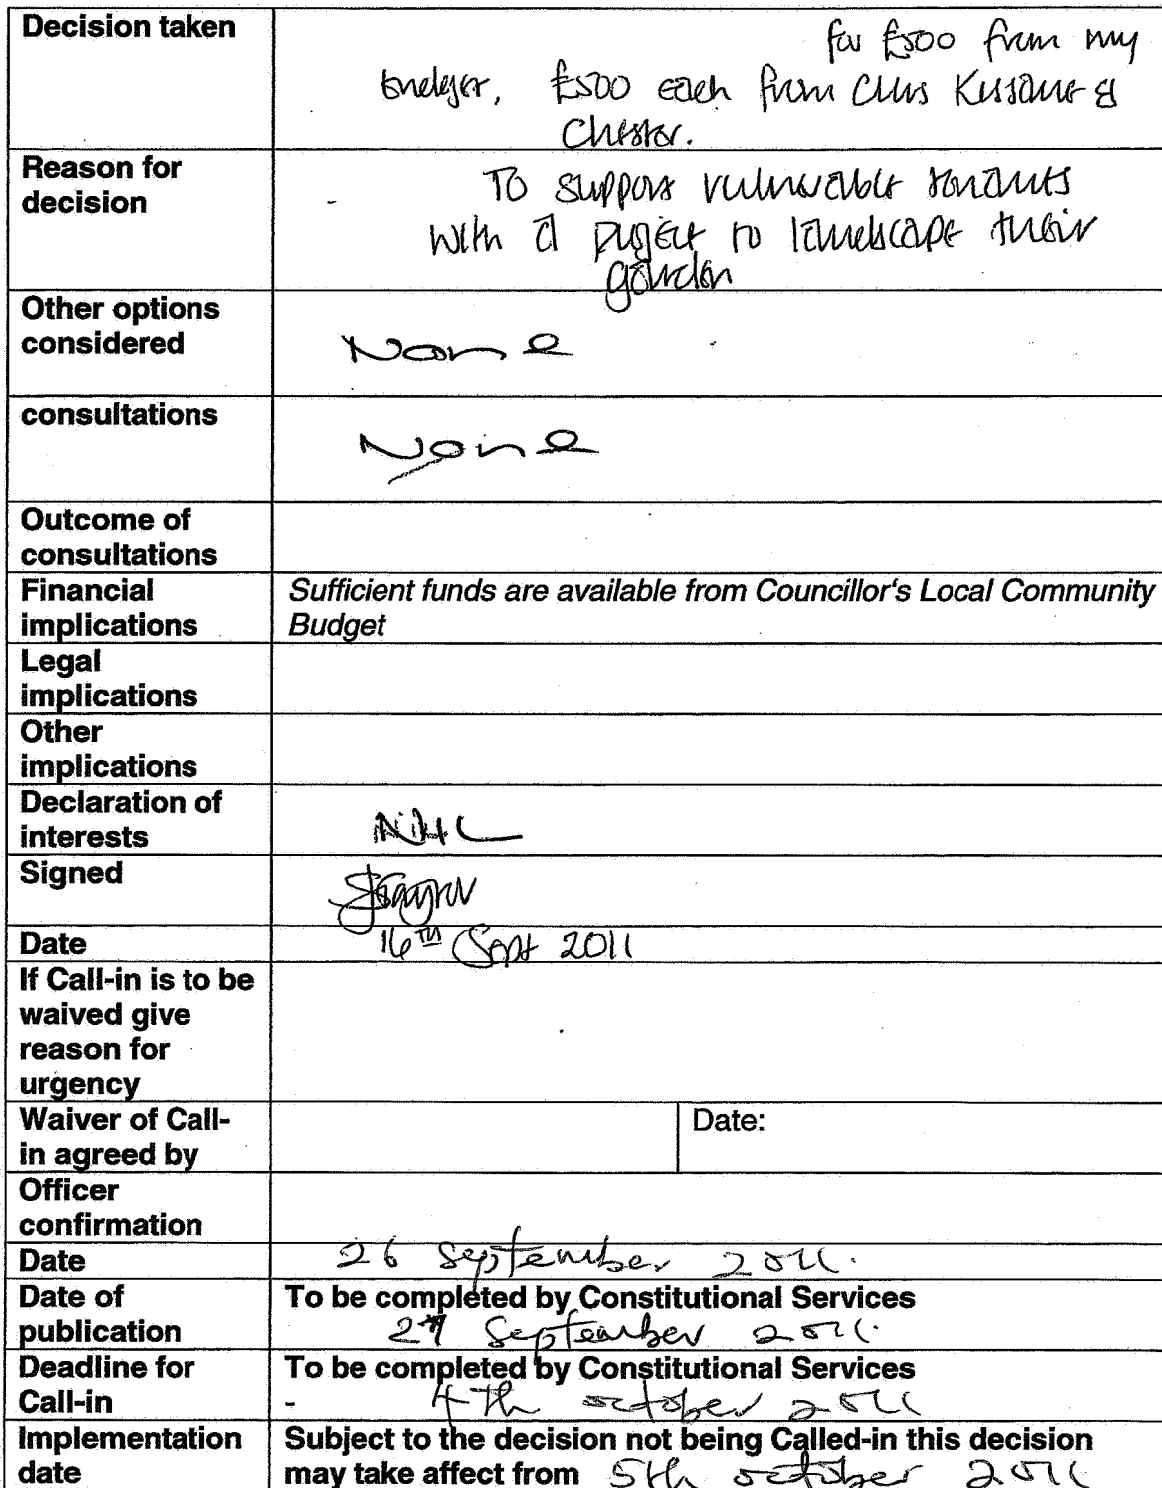 Decision taken
for £500 from my
budget, £500 each from Cllrs &
Chester.
Reason for
decision
To support vulnerable tenants
with a project to landscape their
garden
Other options
considered
None
consultations
None
Outcome of
consultations
Financial
implications
Sufficient funds are available from Councillor's Local Community
Budget
Legal
implications
Other
implications
Declaration of
interests
Signed
Date
16TH Sept 2011
If Call-in is to be
waived give
reason for
urgency
Waiver of Call-
in agreed by
Date:
Officer
confirmation
Date
26 September 2011.
Date of
publication
To be completed by Constitutional Services
27 September 2011.
Deadline for
Call-in
To be completed by Constitutional Services
- 4th october 2011
Implementation
date
Subject to the decision not being Called-in this decision
may take affect from 5th october 2011